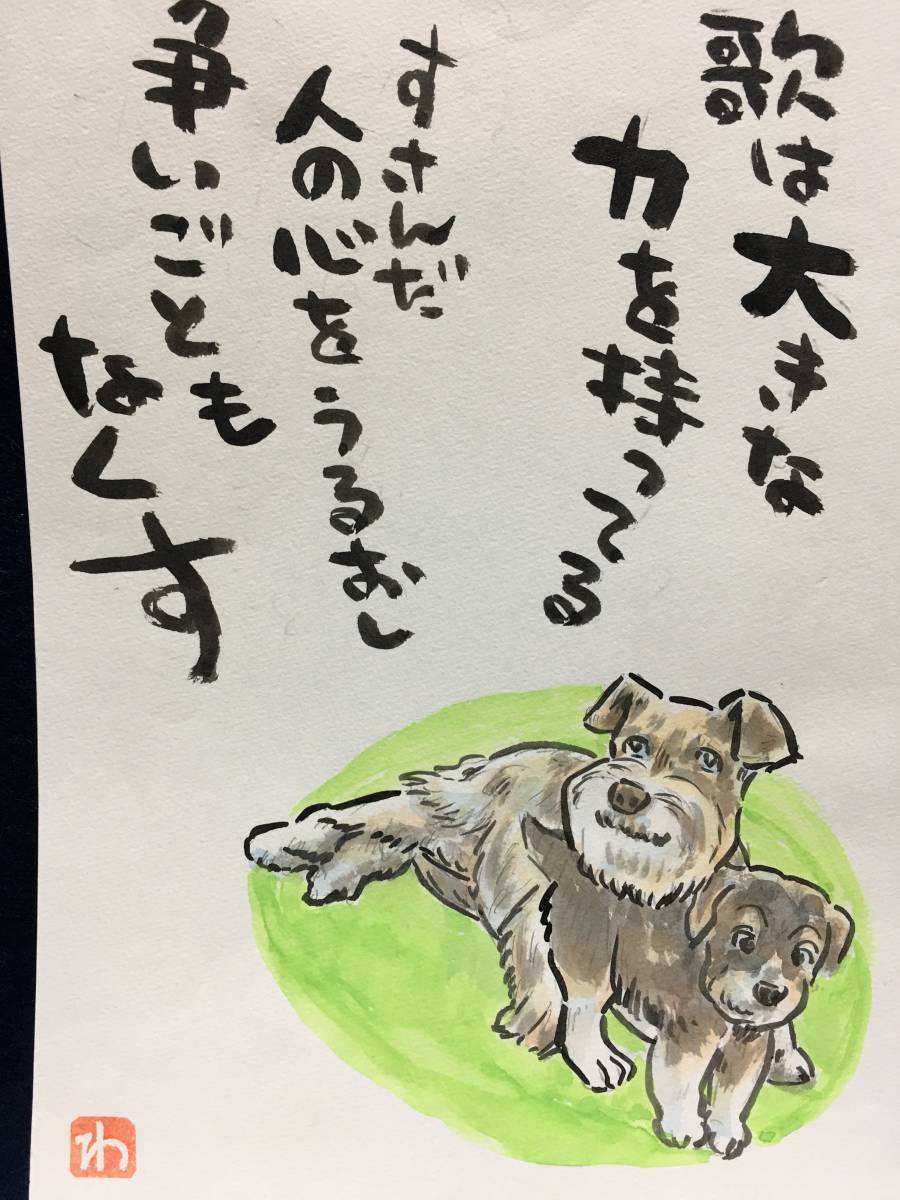 歌は大きな
力を持ってる
すさんだ
人の心をうるおし
争いごとも
なくす
わ